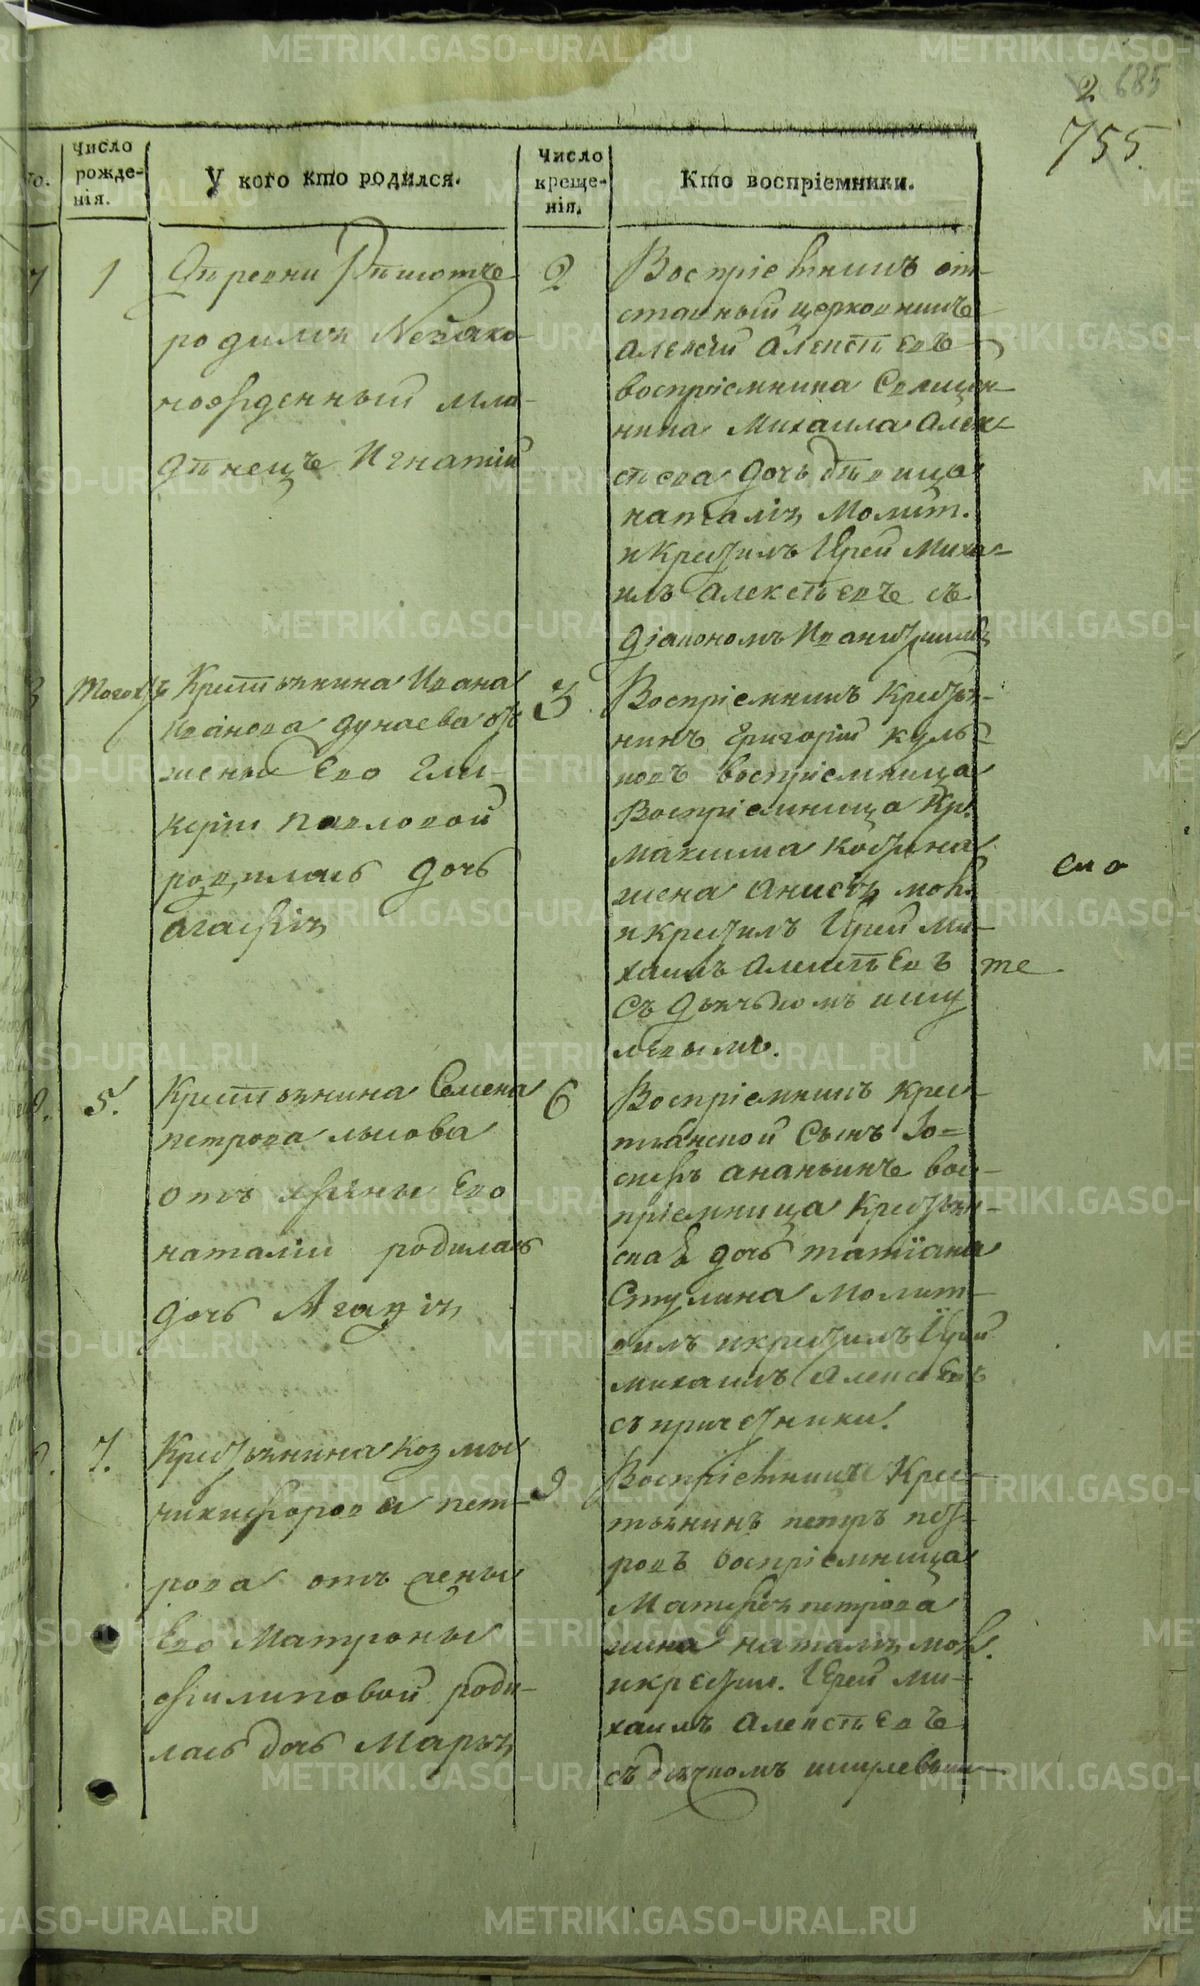 2 685
755.
No.
Число рожде-нія.
У кого кто родился.
Число креще-нія.
Кто воспріемники.
7
1
родился Незако-
норжденный мла-
дѣнецъ Игнатій
2
Воспріемникъ от-
ставный церковникъ
Алексій Алексѣевъ
воспріемница Священ-
ника Михаила Алек-
сѣева дочь дѣвица
наталія Молит.
и крестилъ Іерей Миха-
илъ Алексѣевъ съ
діакономъ
Тогожъ
Крестьянина Ивана
Иванова дунаева отъ
жены Его Гли-
керіи Павловой
родилась дочь
агафія
3
Воспріемникъ Крестья-
нинъ Григорій
воспріемница
Воспріемница Кр.
максима
жена анисія мол.
и крестилъ Іерей Ми-
хаилъ Алексѣевъ те
съ дьячкомъ шиш
левымъ.
5.
Крестьянина Семена
петрова лысова
отъ жены Его
наталіи родилась
дочь Агапія
6
Воспріемникъ крес-
тьянской Сынъ Іо-
сифъ ананьинъ вос-
пріемница Крестьян-
ская дочь татіана
Стулина молит-
вилъ и крестилъ Іерей
михаилъ Алексѣевъ
съ причетники.
7.
Крестьянина козмы
никифорова пет-
рова отъ жены
Его Матроны
филиповой роди-
лась дочь Марья
9
Воспріемникъ Крес-
тьянинъ петръ пет-
ровъ воспріемница
Матвѣя петрова
жена наталія мол.
и крестил. Іерей ми-
хаилъ Алексѣевъ
съ дьячкомъ шишлевым